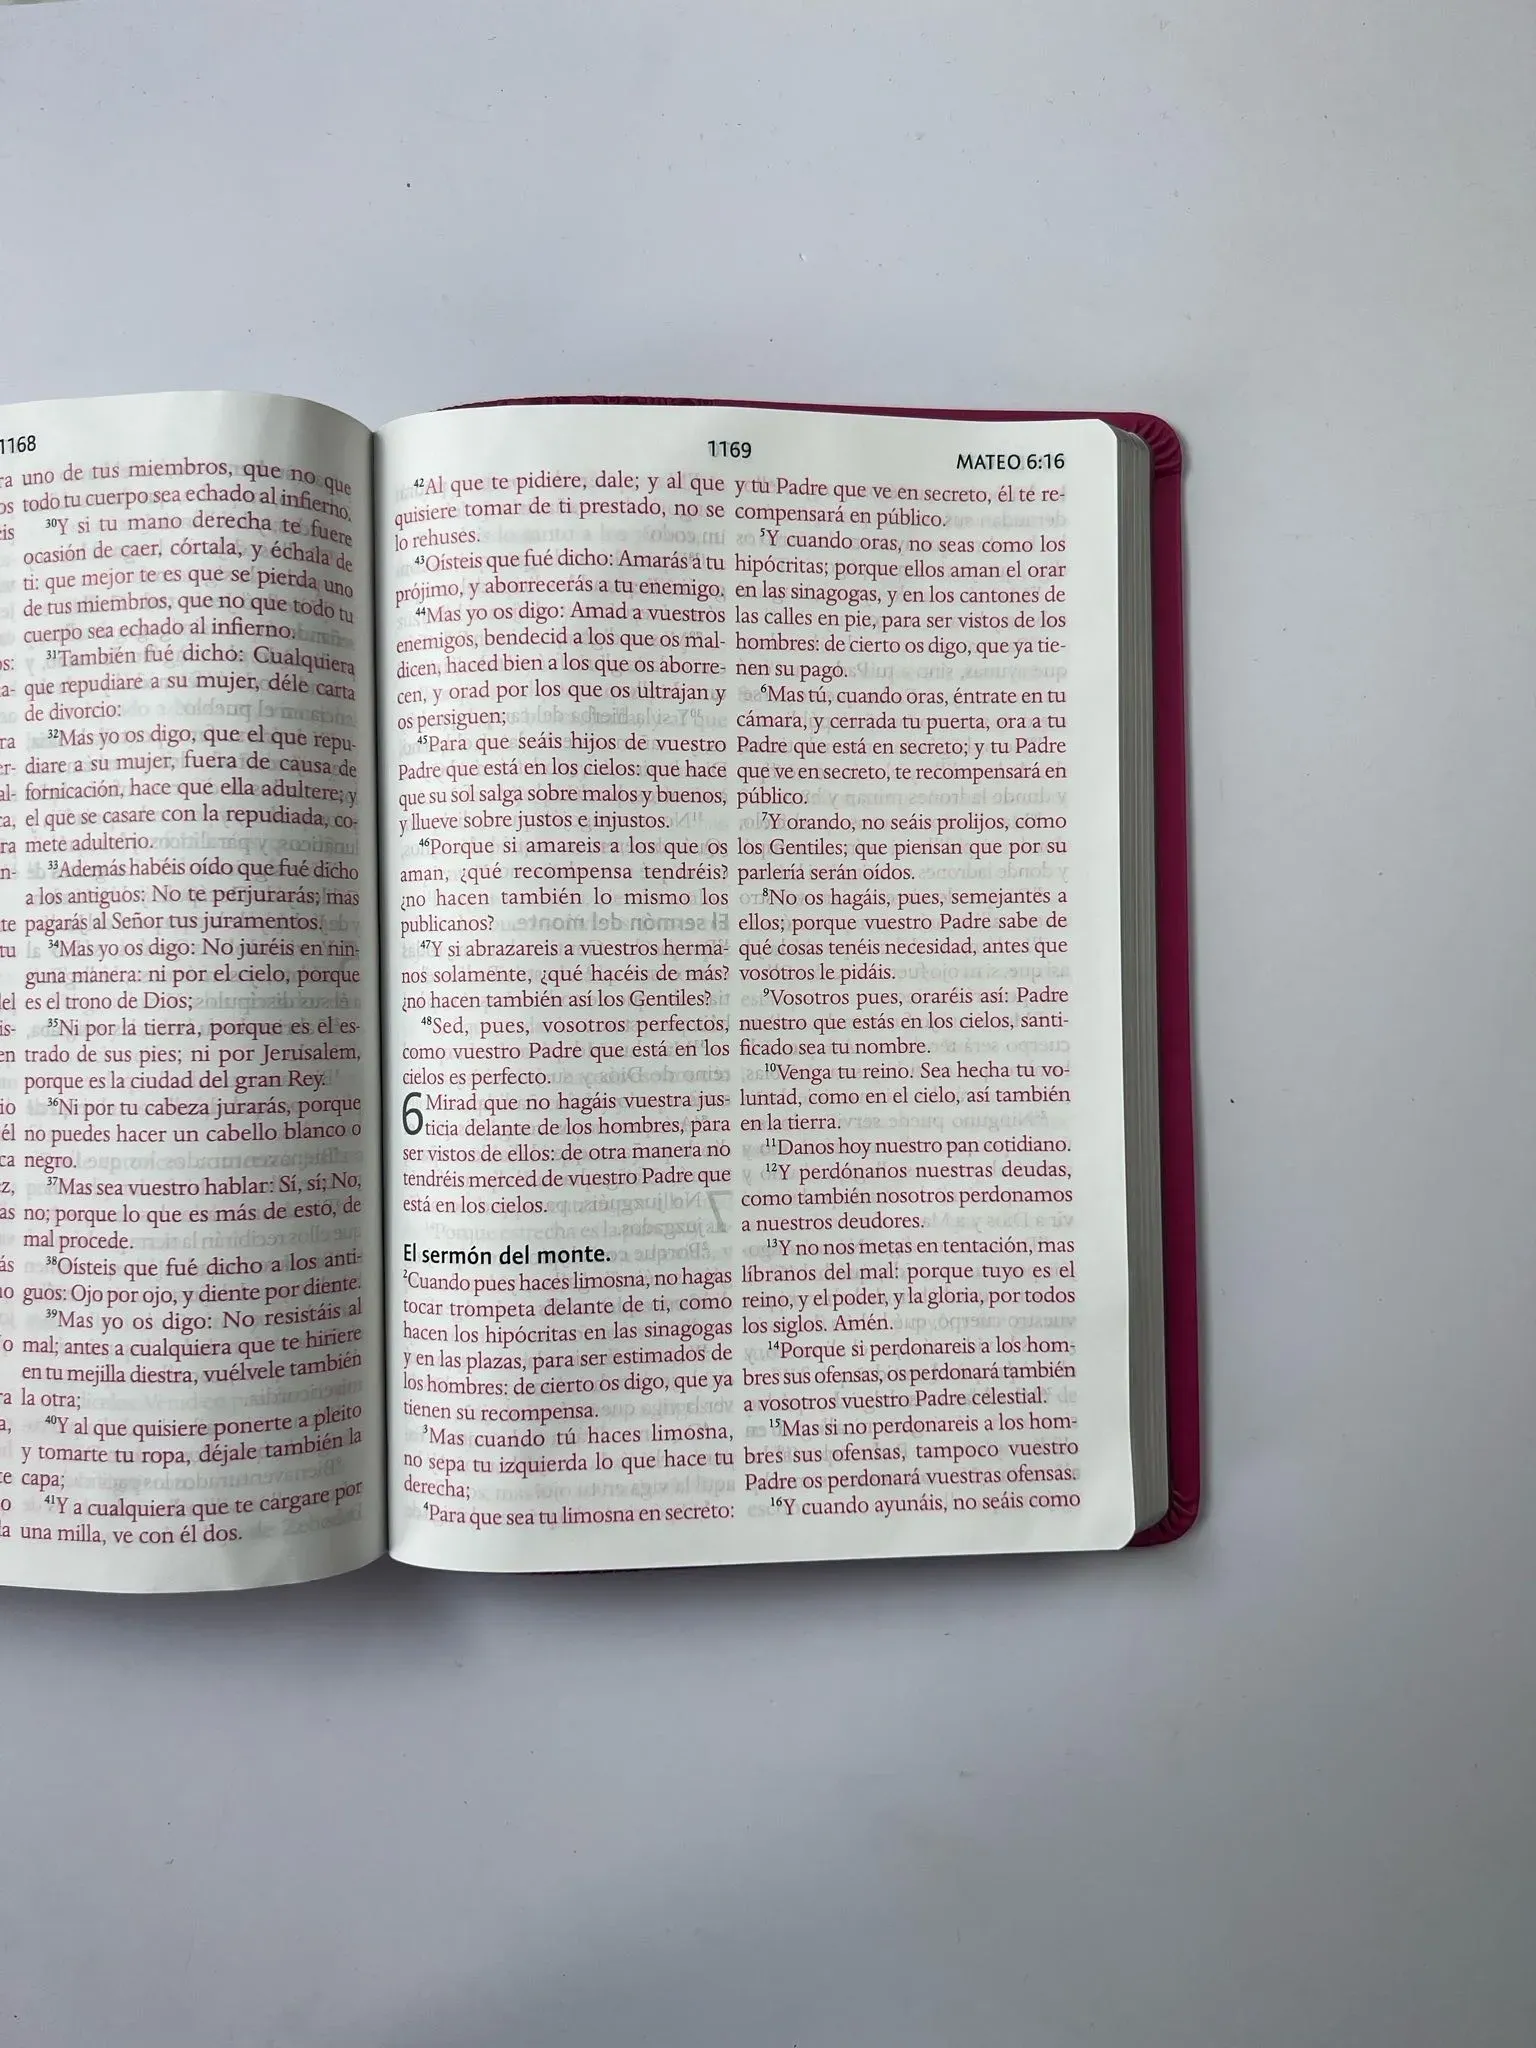 1168
ra uno de tus miembros, que no que
os todo tu cuerpo sea echado al infierno.
eis ³⁰Y si tu mano derecha te fuere
ocasión de caer, córtala, y échala de
ti: que mejor te es que se pierda uno
de tus miembros, que no que todo tu
cuerpo sea echado al infierno.
os: ³¹También fué dicho: Cualquiera
a- que repudiare a su mujer, déle carta
de divorcio:
ra ³²Mas yo os digo, que el que repu-
er- diare a su mujer, fuera de causa de
al- fornicación, hace que ella adultere; y
ca, el que se casare con la repudiada, co-
ra mete adulterio.
n- ³³Además habéis oído que fué dicho
a los antiguos: No te perjurarás; mas
te pagarás al Señor tus juramentos.
tu ³⁴Mas yo os digo: No juréis en nin-
guna manera: ni por el cielo, porque
lel es el trono de Dios;
is- ³⁵Ni por la tierra, porque es el es-
en trado de sus pies; ni por Jerusalem,
porque es la ciudad del gran Rey.
io ³⁶Ni por tu cabeza jurarás, porque
él no puedes hacer un cabello blanco o
ca negro.
z, ³⁷Mas sea vuestro hablar: Sí, sí; No,
as no; porque lo que es más de esto, de
mal procede.
ás ³⁸Oísteis que fué dicho a los anti-
no guos: Ojo por ojo, y diente por diente.
³⁹Mas yo os digo: No resistáis al
o mal; antes a cualquiera que te hiriere
en tu mejilla diestra, vuélvele también
ra la otra;
a, ⁴⁰Y al que quisiere ponerte a pleito
y tomarte tu ropa, déjale también la
te capa;
o ⁴¹Y a cualquiera que te cargare por
la una milla, ve con él dos.
1169
MATEO 6:16
⁴²Al que te pidiere, dale; y al que
quisiere tomar de ti prestado, no se
lo rehuses.
⁴³Oísteis que fué dicho: Amarás a tu
prójimo, y aborrecerás a tu enemigo.
⁴⁴Mas yo os digo: Amad a vuestros
enemigos, bendecid a los que os mal-
dicen, haced bien a los que os aborre-
cen, y orad por los que os ultrajan y
os persiguen;
⁴⁵Para que seáis hijos de vuestro
Padre que está en los cielos: que hace
que su sol salga sobre malos y buenos,
y llueve sobre justos e injustos.
⁴⁶Porque si amareis a los que os
aman, ¿qué recompensa tendréis?
¿no hacen también lo mismo los
publicanos?
⁴⁷Y si abrazareis a vuestros herma-
nos solamente, ¿qué hacéis de más?
¿no hacen también así los Gentiles?
⁴⁸Sed, pues, vosotros perfectos,
como vuestro Padre que está en los
cielos es perfecto.
6 Mirad que no hagáis vuestra jus-
ticia delante de los hombres, para
ser vistos de ellos: de otra manera no
tendréis merced de vuestro Padre que
está en los cielos.
El sermón del monte.
²Cuando pues haces limosna, no hagas
tocar trompeta delante de ti, como
hacen los hipócritas en las sinagogas
y en las plazas, para ser estimados de
los hombres: de cierto os digo, que ya
tienen su recompensa.
³Mas cuando tú haces limosna,
no sepa tu izquierda lo que hace tu
derecha;
⁴Para que sea tu limosna en secreto:
y tu Padre que ve en secreto, él te re-
compensará en público.
⁵Y cuando oras, no seas como los
hipócritas; porque ellos aman el orar
en las sinagogas, y en los cantones de
las calles en pie, para ser vistos de los
hombres: de cierto os digo, que ya tie-
nen su pago.
⁶Mas tú, cuando oras, éntrate en tu
cámara, y cerrada tu puerta, ora a tu
Padre que está en secreto; y tu Padre
que ve en secreto, te recompensará en
público.
⁷Y orando, no seáis prolijos, como
los Gentiles; que piensan que por su
parlería serán oídos.
⁸No os hagáis, pues, semejantes a
ellos; porque vuestro Padre sabe de
qué cosas tenéis necesidad, antes que
vosotros le pidáis.
⁹Vosotros pues, oraréis así: Padre
nuestro que estás en los cielos, santi-
ficado sea tu nombre.
¹⁰Venga tu reino. Sea hecha tu vo-
luntad, como en el cielo, así también
en la tierra.
¹¹Danos hoy nuestro pan cotidiano.
¹²Y perdónanos nuestras deudas,
como también nosotros perdonamos
a nuestros deudores.
¹³Y no nos metas en tentación, mas
líbranos del mal: porque tuyo es el
reino, y el poder, y la gloria, por todos
los siglos. Amén.
¹⁴Porque si perdonareis a los hom-
bres sus ofensas, os perdonará también
a vosotros vuestro Padre celestial.
¹⁵Mas si no perdonareis a los hom-
bres sus ofensas, tampoco vuestro
Padre os perdonará vuestras ofensas.
¹⁶Y cuando ayunáis, no seáis como